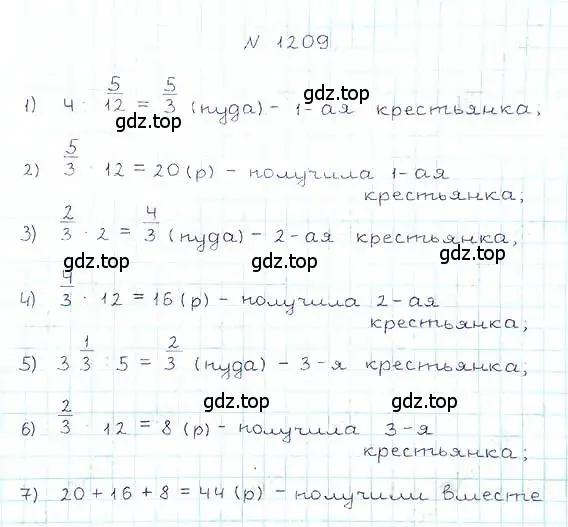 N 1209
1) 4 · 5/12 = 5/3 (пуда) - 1-ая крестьянка;
gdz.top gdz.top
2) 5/3 · 12 = 20 (р) - получила 1-ая
крестьянка;
3) 2/3 · 2 = 4/3 (пуда) - 2-ая крестьянка,
gdz.top gdz.top
4) 4/3 · 12 = 16 (р) - получила 2-ая
крестьянка;
5) 3 1/3 : 5 = 2/3 (пуда) - 3-я крестьянка;
gdz.top gdz.top
6) 2/3 · 12 = 8 (р) - получила 3-я
крестьянка;
7) 20 + 16 + 8 = 44 (р) - получили вместе